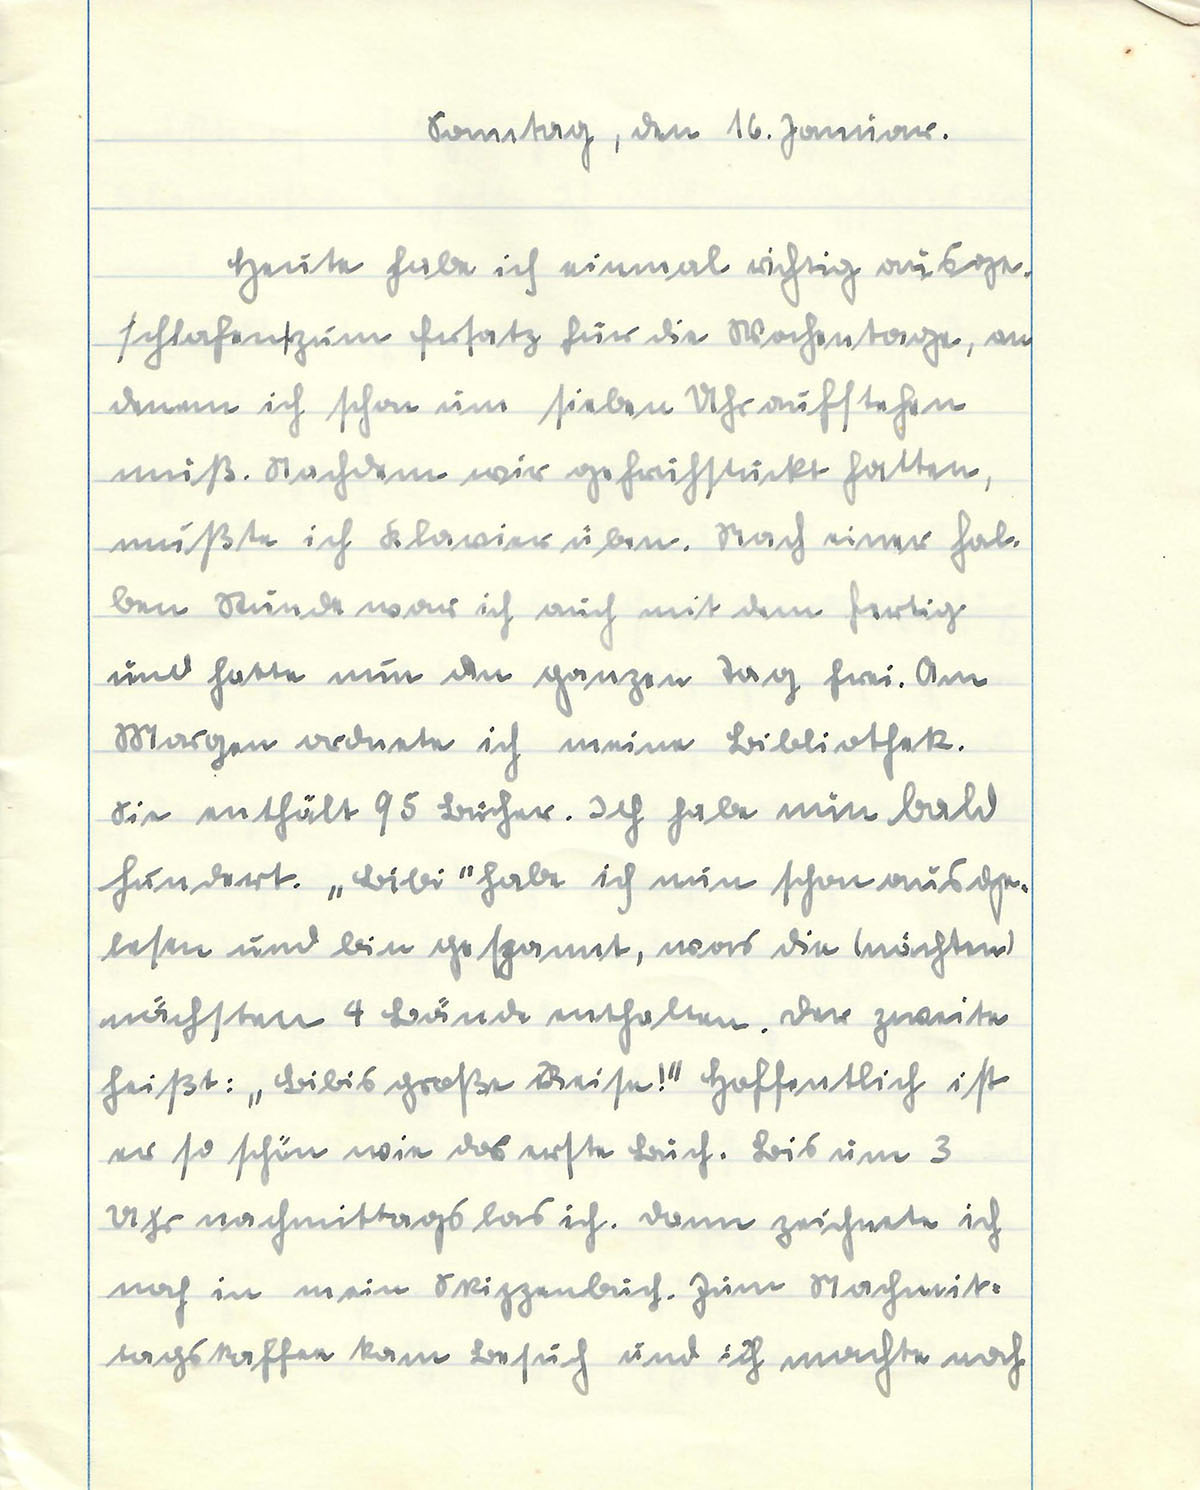 Sonntag, den 16. Januar.
Heute habe ich einmal richtig ausge-
schlafen zum Ersatz für die Wochentage, an
denen ich schon um sieben Uhr aufstehen
muß. Nachdem wir gefrühstückt hatten,
mußte ich Klavier üben. Nach einer hal-
ben Stunde war ich auch mit dem fertig
und hatte nun den ganzen Tag frei. Am
Morgen ordnete ich meine Bibliothek.
Sie enthält 95 Bücher. Ich habe nun bald
hundert. „Bibi" habe ich nun schon ausge-
lesen und bin gespannt, was die (nächten)
nächsten 4 Bände enthalten. Der zweite
heißt: „Bibis große Reise!" Hoffentlich ist
er so schön wie das erste Buch. Bis um 3
Uhr nachmittags las ich. Dann zeichnete ich
noch in mein Skizzenbuch. Zum Nachmit-
tagskaffee kam Besuch und ich machte noch